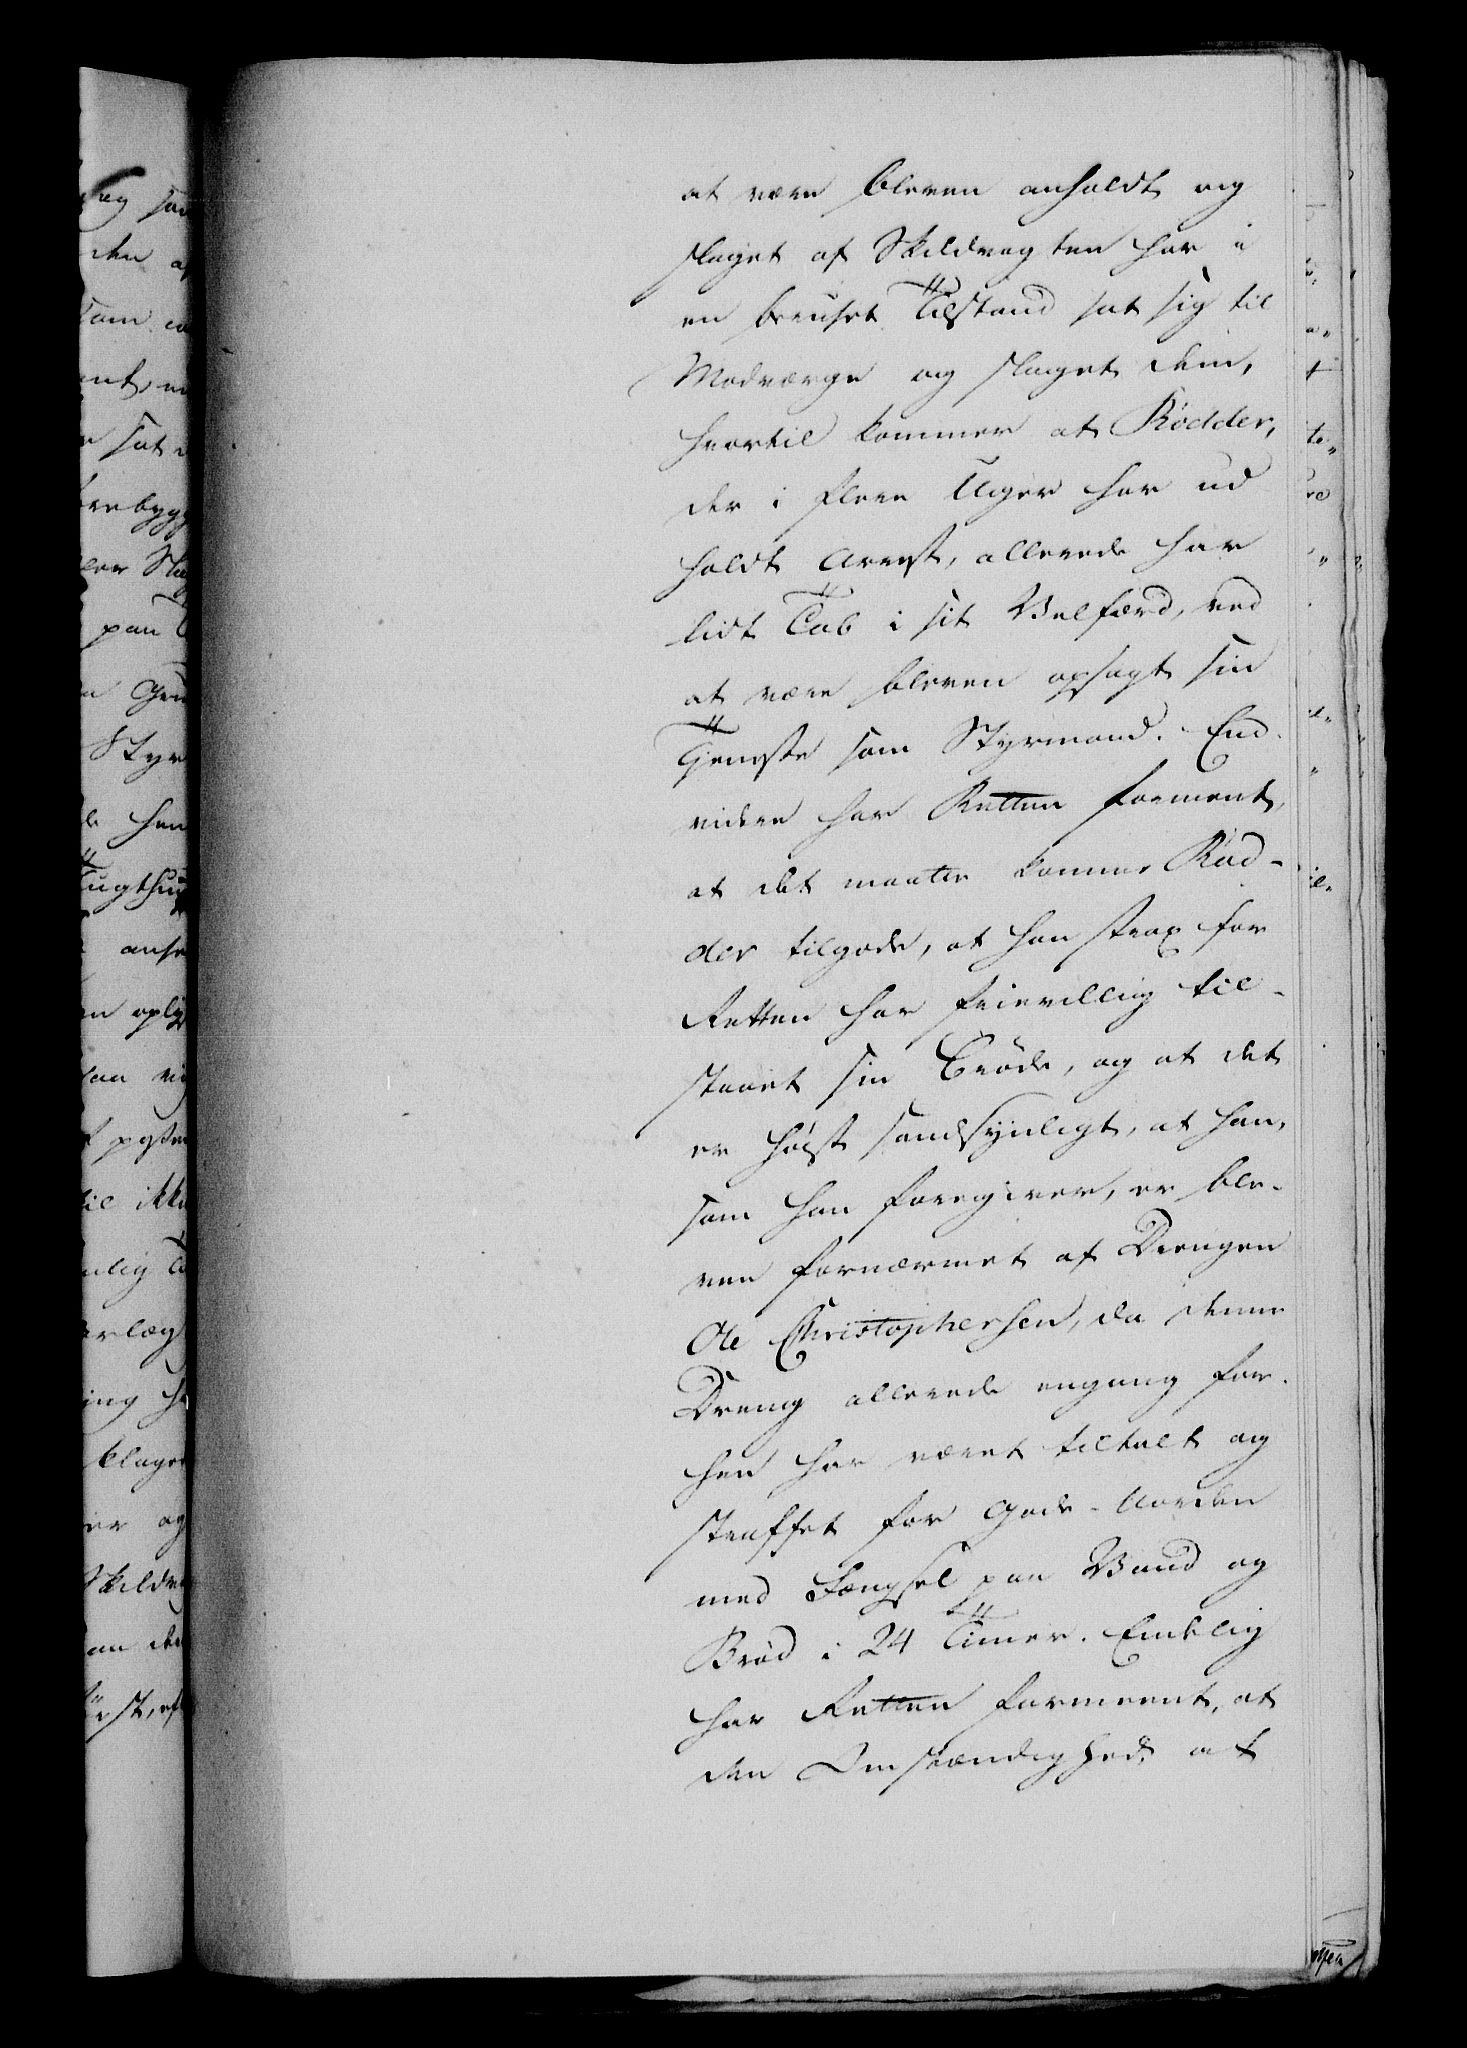 at være bleven anholdt og
slaget af Skildvagten har i
en beruset Tilstand sat sig til
Modværge og slaget dem,
hvortil kommer at Rödder,
der i flere Uger har ud
holdt Arrest, allerede har
lidt Tab i sit Velfærd, ved
at være bleven opsagt sin
Tjeneste som Styrmand. End-
videre har Retten formeent,
at det maatte komme Röd-
der tilgode, at han strax for
Retten har frievillig til-
staaet sin Bröde, og at det
er høist sandsynligt, at han,
som han foregiver, er ble-
ven fornærmet af Drengen
Ole Christophersen, da denne
Dreng allerede engang for-
hen har været tiltalt og
straffet for Gade-Uorden
med Fængsel paa Vand og
Brød i 24 Timer. Endelig
har Retten formeent, at
den Omstændighed, at